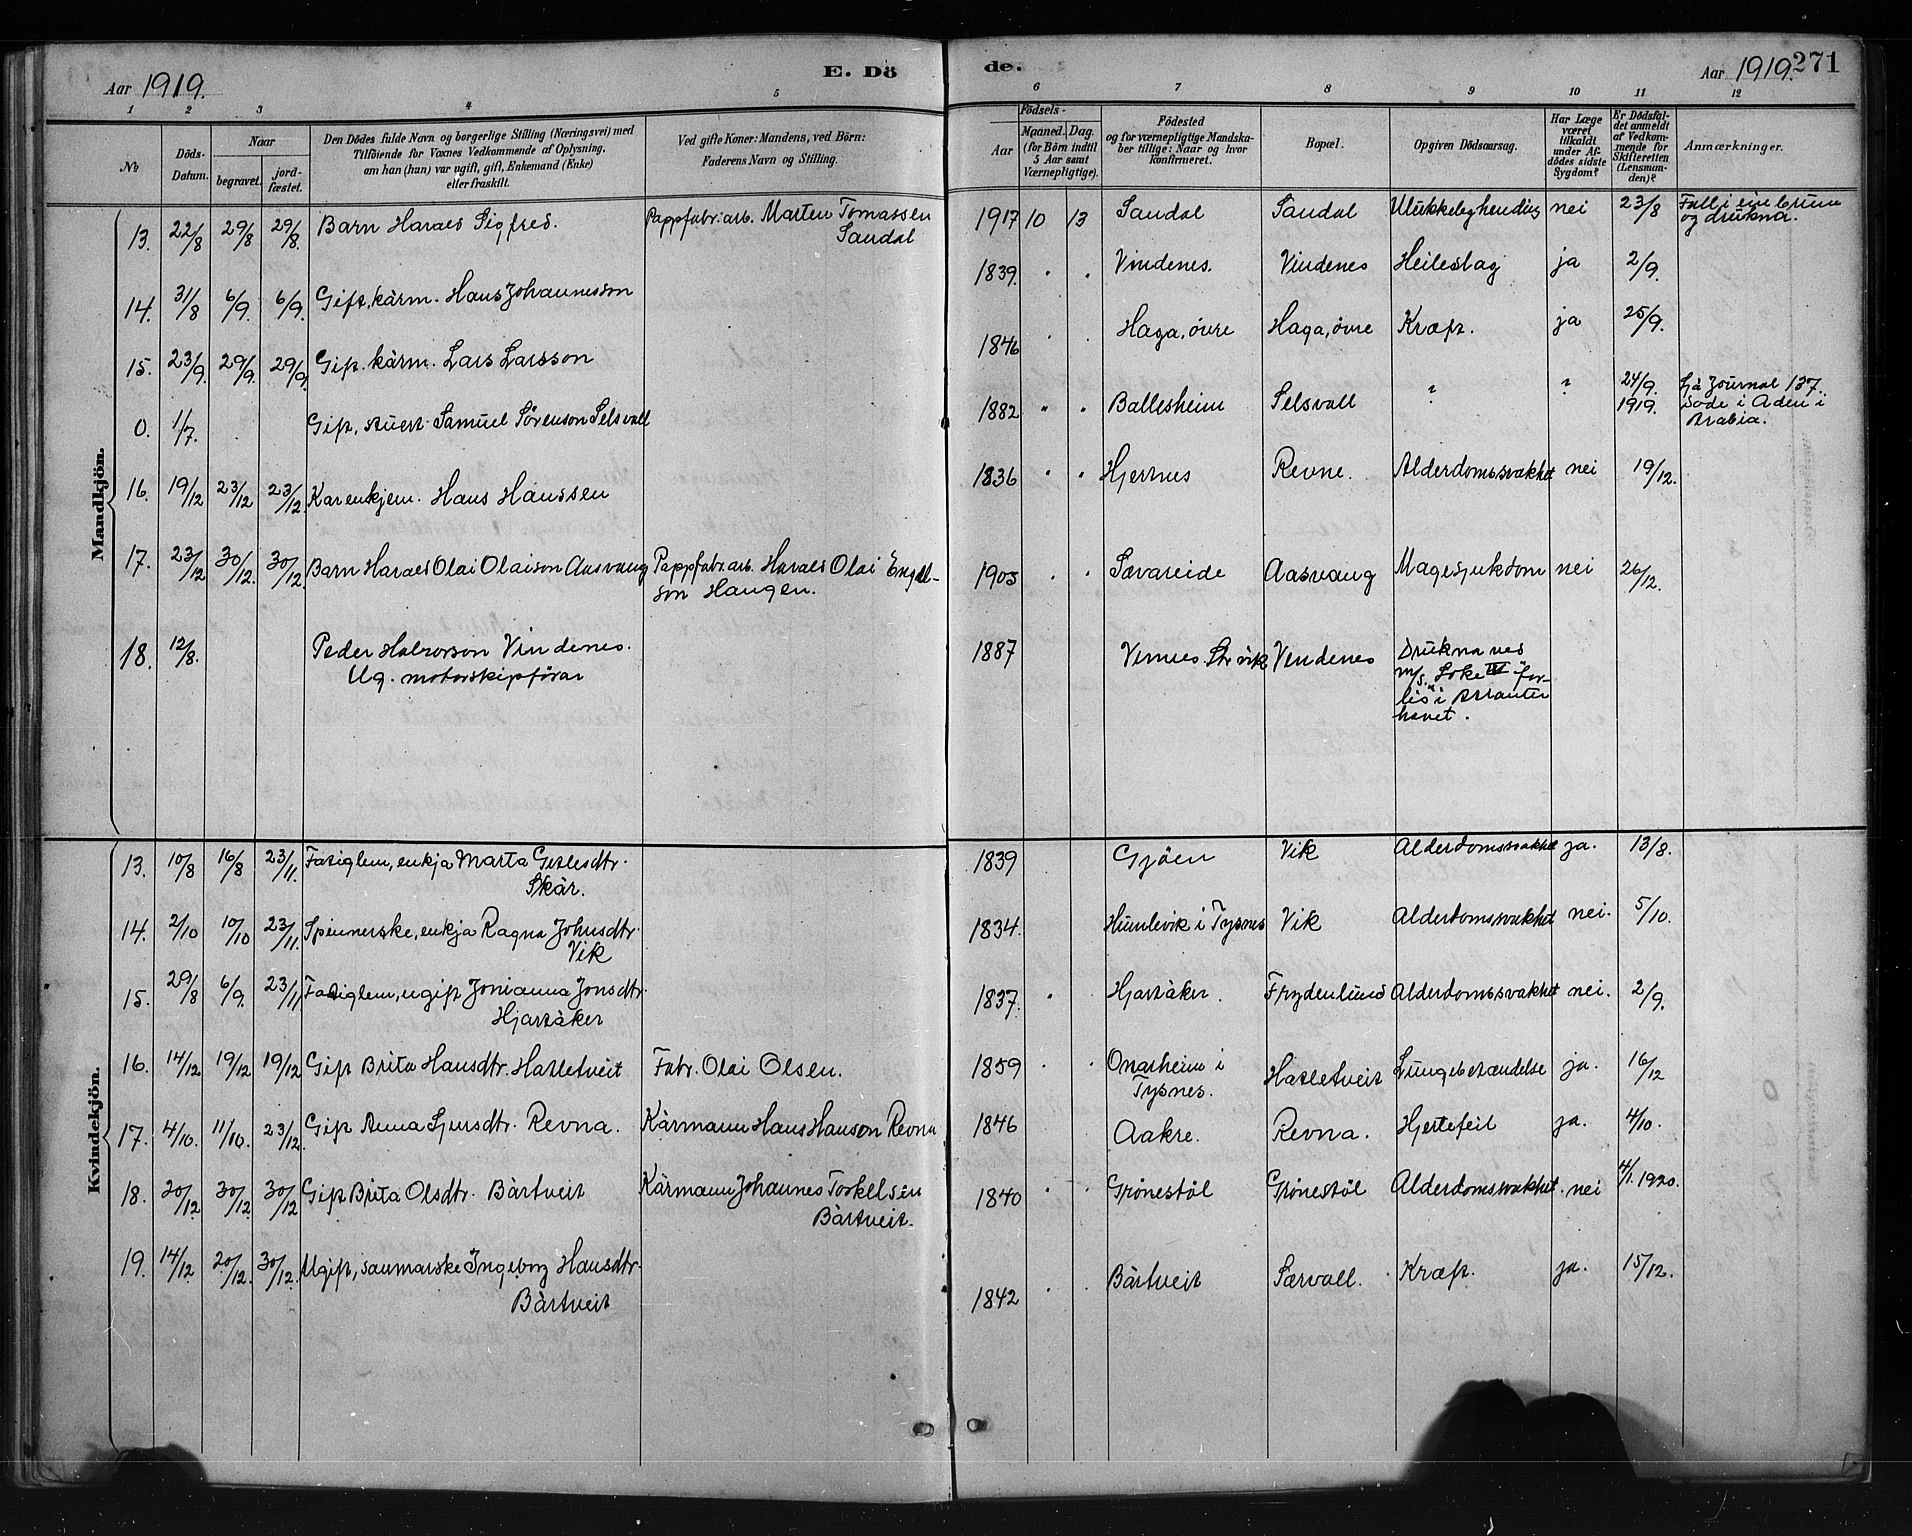 Aar 1919.
E. Dö
de.
Aar 1919.
271
1 2 3 4 5 6 7 8 9 10 11 12
№
Döds-
Datum.
Naar
begravet.
jord-
fæstet.
Den Dödes fulde Navn og borgerlige Stilling (Næringsvei) med
Tilföiende for Voxnes Vedkommende af Oplysning,
om han (hun) var ugift, gift, Enkemand (Enke)
eller fraskilt.
Ved gifte Koner: Mandens, ved Börn:
Faderens Navn og Stilling.
Födsels-
Aar
Maaned.
Dag.
(for Börn indtil
5 Aar samt
Værnepligtige).
Födested
og for værnepligtige Mandska-
ber tillige: Naar og hvor
Konfirmeret.
Bopæl.
Opgiven Dödsaarsag.
Har Læge
været
tilkaldt
under Af-
dödes sidste
Sygdom?
Er Dödsfal-
det anmeldt
af Vedkom-
mende for
Skifteretten
(Lensman-
den)?
Anmærkninger.
Mandkjön.
13. 22/8 29/8 29/8. Barn Harald Sigfred. Pappfabr. arb. Marten Tomassen
Sandal
1917 10 13 Sandal Sandal Ulukkeleg hending nei 23/8 Fall i ein brunn
og drukna.
14. 31/8 6/9. 6/9. Gift, kårm. Hans Johannesson 1839. Vindenes. Vindenes Heileslag ja 2/9.
15. 23/9. 29/9. 29/9. Gift. kårm. Lars Larsson 1846 Haga, övre Haga, övre Kræft. ja 25/9.
0. 1/7. Gift, stuert Samuel Sörenson Selsvall 1882 Ballesheim Selsvall ? ? 24/9.
1919. Sjå Journal 137.
Döde i Aden i
Arabia.
16. 19/12 23/12 23/12. Kårenkjem. Hans Hanssen 1836 Hjernes Revne. Alderdomssvakhet nei 19/12.
17. 23/12 30/12. 30/12. Barn Harald Olai Olaison Aasvang Pappfabr. arb. Harald Olai Engel-
son Haugen.
1905 Sævareide Aasvang Magesjukdom nei 26/12.
18. 12/8. Peder Halvorson Vindenes.
Ug. motorskipförar
1887 Vindenes Drukna ved
m/s. "Loke IV" for-
lis i Atlanter
havet.
Kvindekjön.
13. 10/8 16/8 23/11. Fatiglem, enkja Marta Gitlesdtr.
Skår.
1839 Gjöen Vik Alderdomssvakhet ja. 13/8.
14. 2/10 10/10 23/11. Spinnerske, enkja Ragna Johnsdtr.
Vik
1834. Humlevik i Tysnes Vik Alderdomssvakhet nei. 5/10.
15. 29/8 6/9. 23/11 Fatiglem, ugift Jonianna Jonsdtr.
Hjartåker
1837. Hjartåker. Frydenlund Alderdomssvakhet nei. 2/9.
16. 14/12 19/12 19/12 Gift Brita Hansdtr. Hatletveit Fabr. Olai Olsen.
1859 Onarheim i
Tysnes.
Hatletveit Lungebetændelse ja. 16/12
17. 4/10. 11/10. 23/12. Gift Anna Sjursdtr. Revna. Kårmann Hans Hanson Revna
1846 Aakre. Revna. Hjertefeil ja. 4/10.
18. 20/12 30/12. 30/12 Gift Brita Olsdtr. Bårtveit Kårmann Johannes Torkelsen
Bårtveit.
1840 Grönestöl Grönestöl Alderdomssvakhet. nei 4/1. 1920.
19. 14/12 20/12. 30/12. Ugift, saumarske Ingeborg Hansdtr.
Bårtveit
1842 Bårtveit Særvoll. Kræft. ja. 15/12.